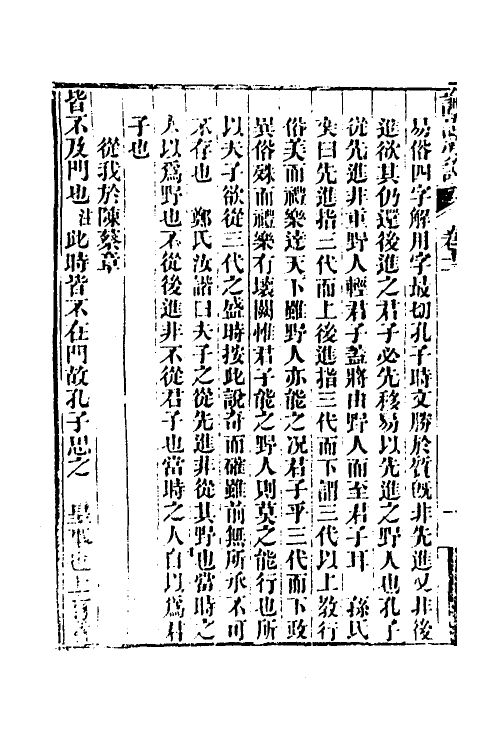 易俗四字解用字最切孔子時文勝於質旣非先進又非後
進欲其仍還後進之君子必先移易以先進之野人也孔子
從先進非重野人輕君子蓋將由野人而至君子耳　孫氏
奕曰先進指三代而上後進指三代而下謂三代以上敎行
俗美而禮樂達天下雖野人亦能之况君子乎三代而下政
異俗殊而禮樂有壞闕惟君子能之野人則莫之能行也所
以夫子欲從三代之盛時按此說奇而確雖前無所承不可
不存也　鄭氏汝諧曰夫子之從先進非從其野也當時之
人以爲野也不從後進非不從君子也當時之人自以爲君
子也
從我於陳蔡章
皆不及門也註此時皆不在門故孔子思之　皇